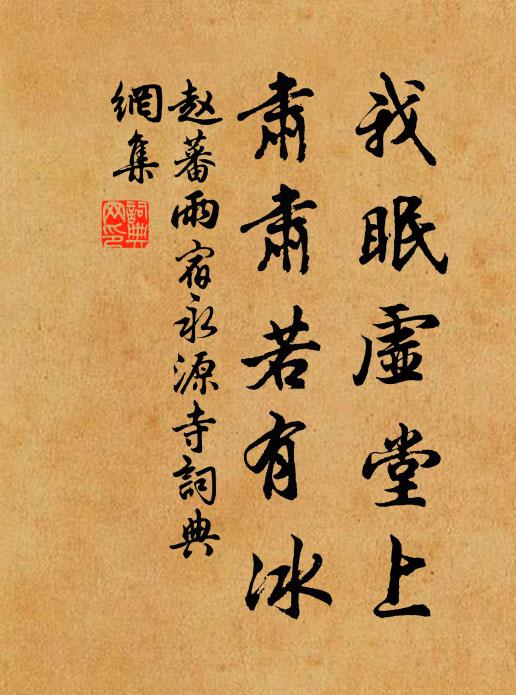 我眠虛堂上
肅肅若有冰
赵蕃雨宿永源寺詞典
網集
詞典
网印